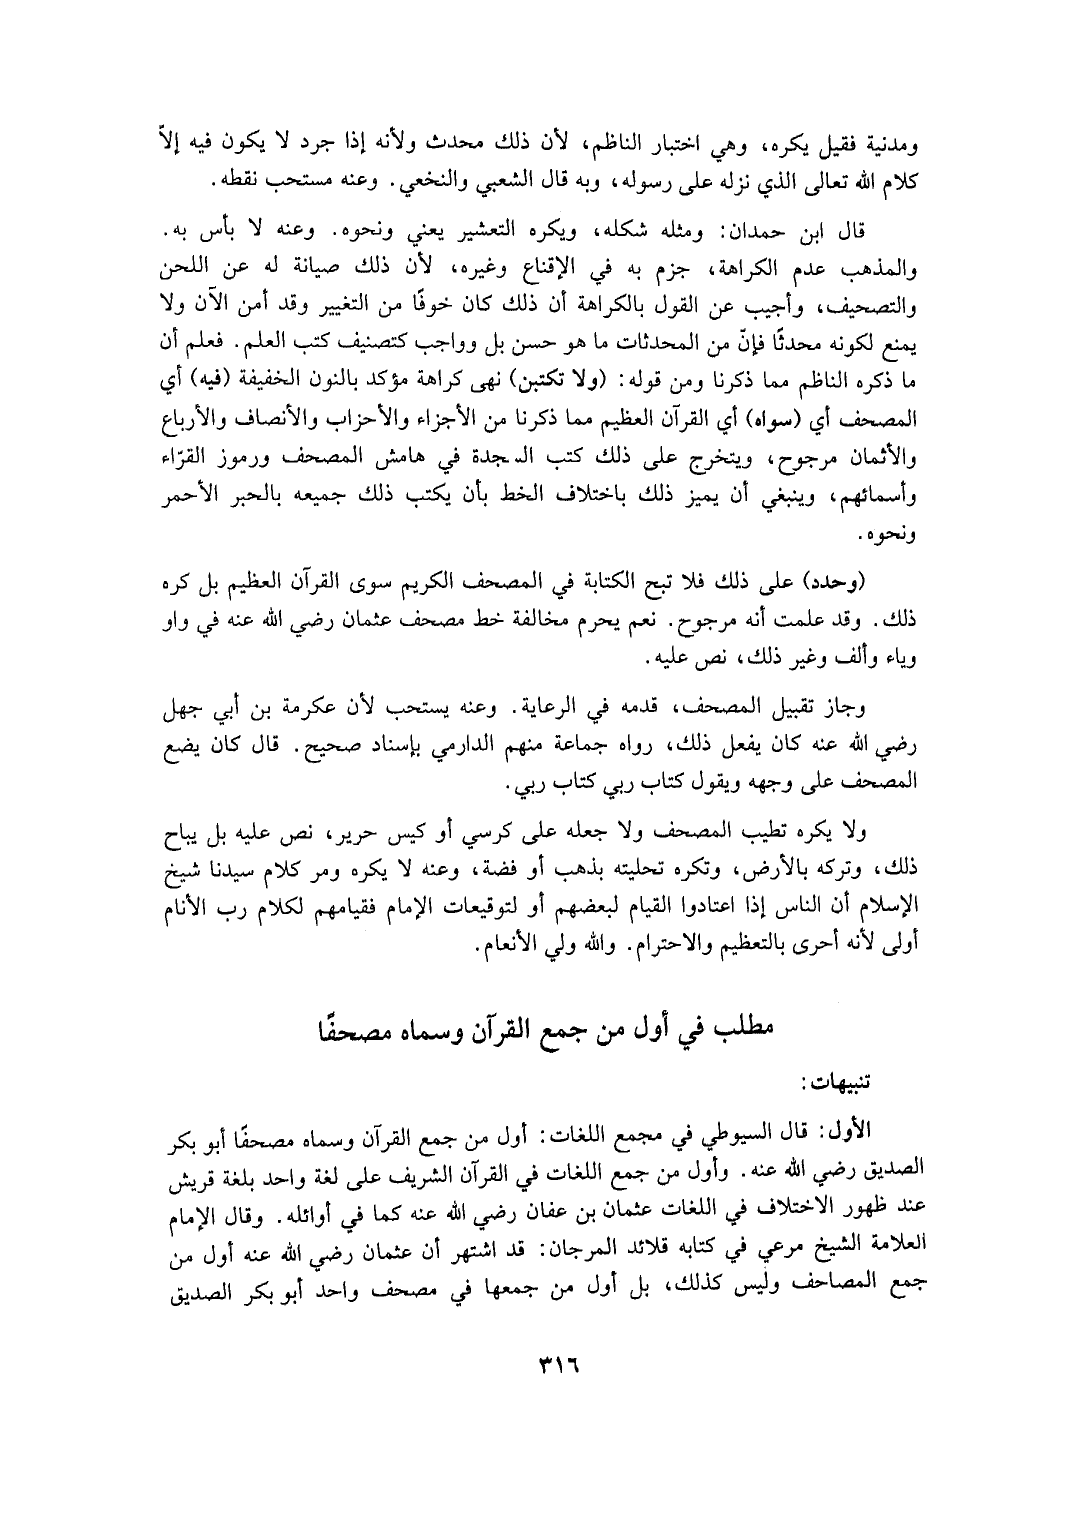 ومدنية فقيل يكره، وهي اختبار الناظم، لأن ذلك محدث ولأنه إذا جرد لا يكون فيه إلاّ
كلام الله تعالى الذي نزله على رسوله، وبه قال الشعبي والنخعي. وعنه مستحب نقطه.
قال ابن حمدان: ومثله شكله، ويكره التعشير يعني ونحوه. وعنه لا بأس به.
والمذهب عدم الكراهة، جزم به في الإقناع وغيره، لأن ذلك صيانة له عن اللحن
والتصحيف، وأجيب عن القول بالكراهة أن ذلك كان خوفًا من التغيير وقد أمن الآن ولا
يمنع لكونه محدثًا فإنّ من المحدثات ما هو حسن بل وواجب كتصنيف كتب العلم. فعلم أن
ما ذكره الناظم مما ذكرنا ومن قوله: (ولا تكتبن) نهى كراهة مؤكد بالنون الخفيفة (فيه) أي
المصحف أي (سواه) أي القرآن العظيم مما ذكرنا من الأجزاء والأحزاب والأنصاف والأرباع
والأثمان مرجوح، ويتخرج على ذلك كتب السجدة في هامش المصحف ورموز القرّاء
وأسمائهم، وينبغي أن يميز ذلك باختلاف الخط بأن يكتب ذلك جميعه بالحبر الأحمر
ونحوه.
(وحدد) على ذلك فلا تبح الكتابة في المصحف الكريم سوى القرآن العظيم بل كره
ذلك. وقد علمت أنه مرجوح. نعم يحرم مخالفة خط مصحف عثمان رضي الله عنه في واو
وياء وألف وغير ذلك، نص عليه.
وجاز تقبيل المصحف، قدمه في الرعاية. وعنه يستحب لأن عكرمة بن أبي جهل
رضي الله عنه كان يفعل ذلك، رواه جماعة منهم الدارمي بإسناد صحيح. قال كان يضع
المصحف على وجهه ويقول كتاب ربي كتاب ربي.
ولا يكره تطيب المصحف ولا جعله على كرسي أو كيس حرير، نص عليه بل يباح
ذلك، وتركه بالأرض، وتكره تحليته بذهب أو فضة، وعنه لا يكره ومر كلام سيدنا شيخ
الإسلام أن الناس إذا اعتادوا القيام لبعضهم أو لتوقيعات الإمام فقيامهم لكلام رب الأنام
أولى لأنه أحرى بالتعظيم والاحترام. والله ولي الأنعام.
مطلب في أول من جمع القرآن وسماه مصحفًا
تنبيهات:
الأول: قال السيوطي في مجمع اللغات: أول من جمع القرآن وسماه مصحفًا أبو بكر
الصديق رضي الله عنه. وأول من جمع اللغات في القرآن الشريف على لغة واحد بلغة قريش
عند ظهور الاختلاف في اللغات عثمان بن عفان رضي الله عنه كما في أوائله. وقال الإمام
العلامة الشيخ مرعي في كتابه قلائد المرجان: قد اشتهر أن عثمان رضي الله عنه أول من
جمع المصاحف وليس كذلك، بل أول من جمعها في مصحف واحد أبو بكر الصديق
٣١٦